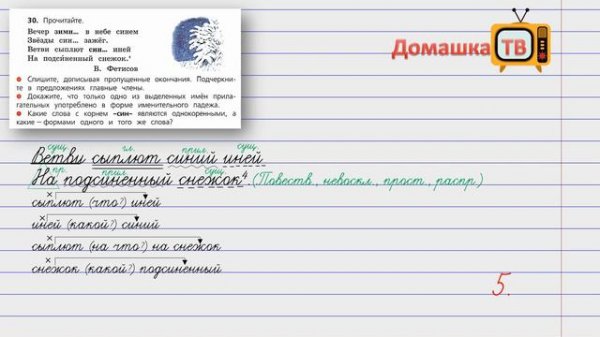 30. Прочитайте.
Вечер зимн... в небе синем
Звёзды син... зажёг.
Ветви сыплют син... иней
На подсинённый снежок.⁴
В. Фетисов
● Спишите, дописывая пропущенные окончания. Подчеркни-
те в предложениях главные члены.
● Докажите, что только одно из выделенных имён прила-
гательных употреблено в форме именительного падежа.
● Какие слова с корнем -син- являются однокоренными, а
какие – формами одного и того же слова?
Домашка ТВ
сущ. гл. прил. сущ.
Ветви сыплют синий иней
пр. прил. сущ.
На подсинённый снежок⁴. (Повеств., невоскл., прост., распр.)
сыплют (что?) иней
иней (какой?) синий
сыплют (на что?) на снежок
снежок (какой?) подсинённый
5.